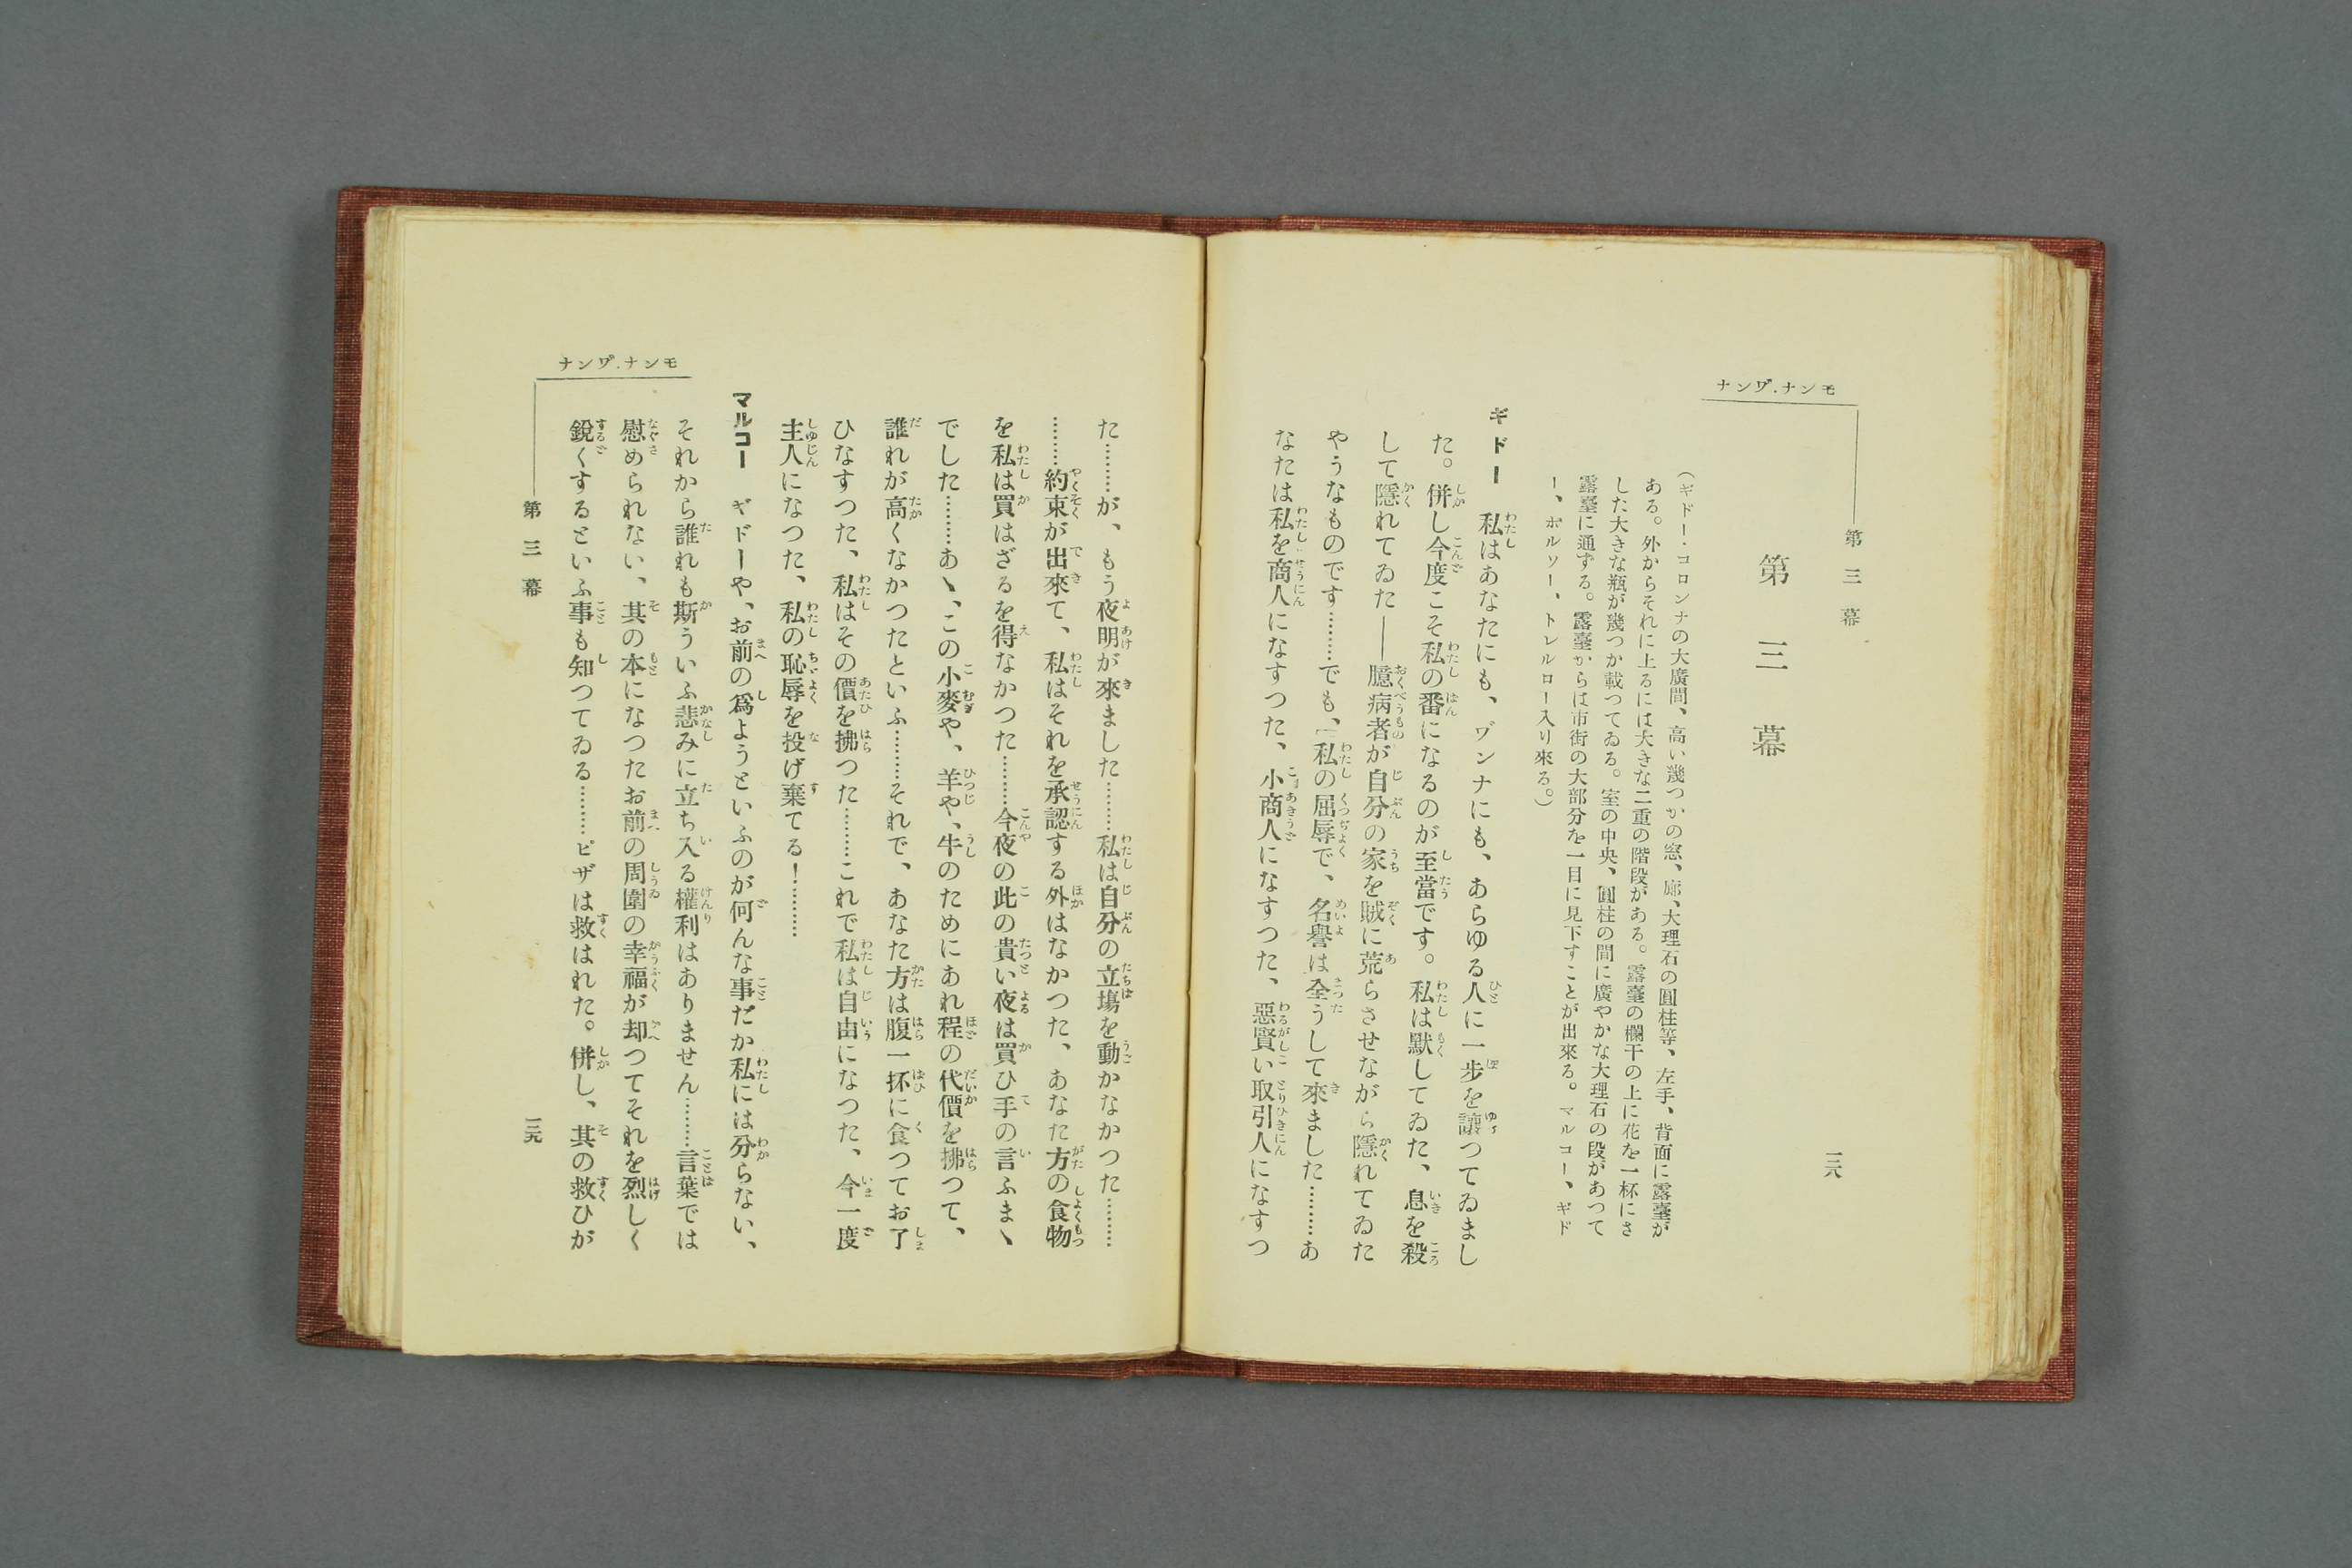 モンナ.ワ゛ンナ
第三幕
一三六
第三幕
（ギドー・コロンナの大廣間、高い幾つかの窓、廊、大理石の圓柱等、左手、背面に露臺が
ある。外からそれに上るには大きな二重の階段がある。露臺の欄干の上に花を一杯にさ
した大きな瓶が幾つか載つてゐる。室の中央、圓柱の間に廣やかな大理石の段があつて
露臺に通ずる。露臺からは市街の大部分を一目に見下すことが出來る。マルコー、ギド
ー、ボルソー、トレルロー入り來る。）
ギドー　私はあなたにも、ワ゛ンナにも、あらゆる人に一歩を讓つてゐまし
た。併し今度こそ私の番になるのが至當です。私は默してゐた、息を殺
して隱れてゐた――臆病者が自分の家を賊に荒らさせながら隱れてゐた
やうなものです………でも、私の屈辱で、名譽は全うして來ました………あ
なたは私を商人になすつた、小商人になすつた、惡賢い取引人になすつ
モンナ.ワ゛ンナ
た………が、もう夜明が來ました………私は自分の立塲を動かなかつた………
………約束が出來て、私はそれを承認する外はなかつた、あなた方の食物
を私は買はざるを得なかつた………今夜の此の貴い夜は買ひ手の言ふまゝ
でした………あゝ、この小麥や、羊や、牛のためにあれ程の代價を拂つて、
誰れが高くなかつたといふ………それで、あなた方は腹一杯に食つてお了
ひなすつた、私はその價を拂つた………これで私は自由になつた、今一度
主人になつた、私の恥辱を投げ棄てる！………
マルコー　ギドーや、お前の爲ようといふのが何んな事だか私には分らない、
それから誰れも斯ういふ悲みに立ち入る權利はありません………言葉では
慰められない、其の本になつたお前の周圍の幸福が却つてそれを烈しく
鋭くするといふ事も知つてゐる………ピザは救はれた。併し、其の救ひが
第三幕
一三七